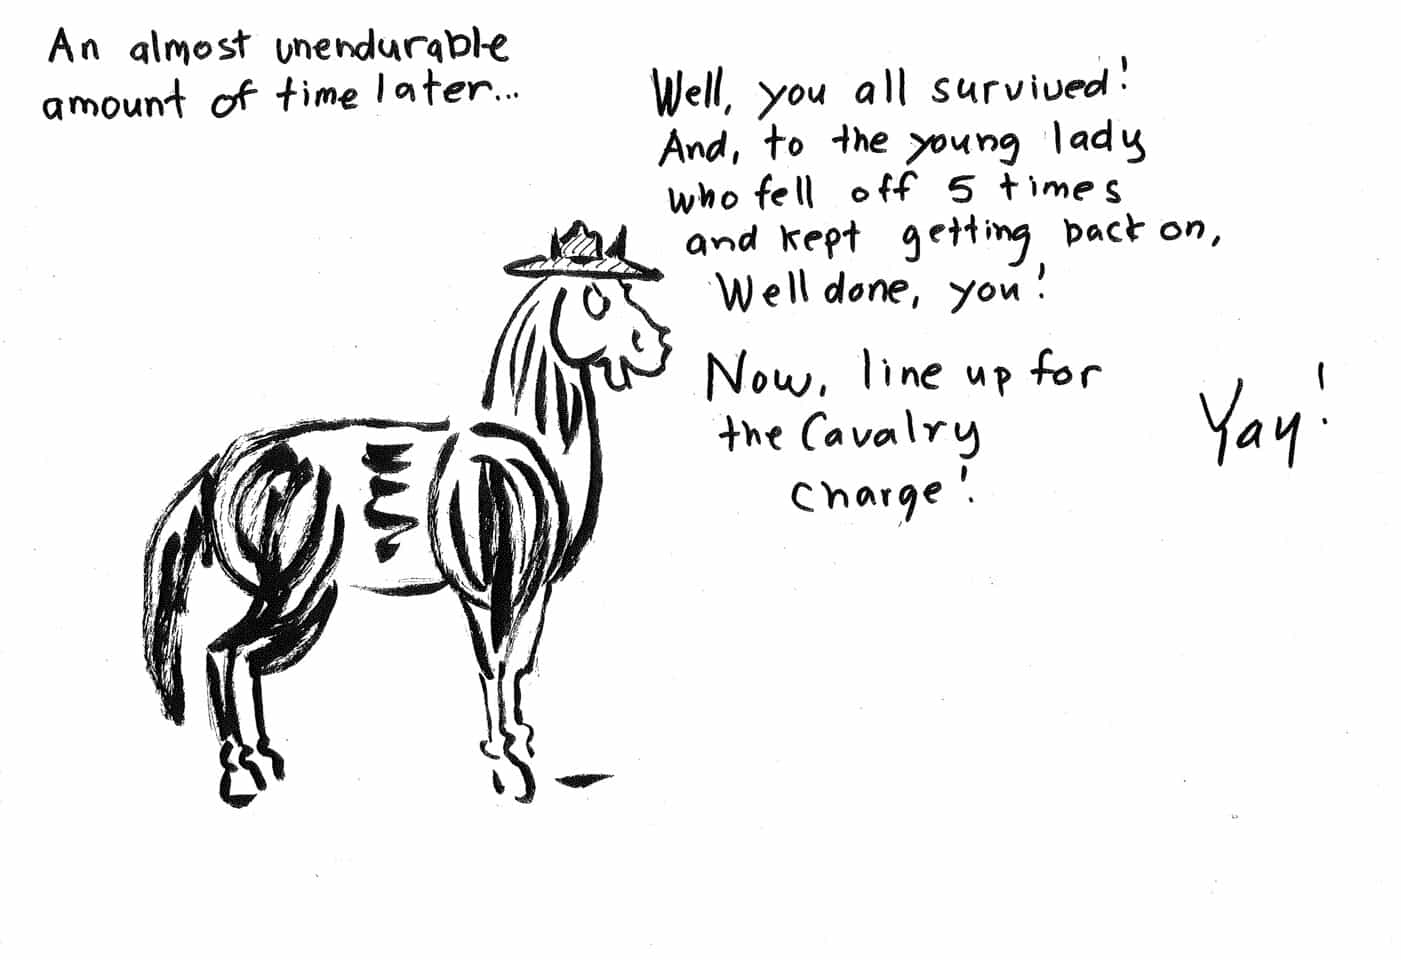 An almost unendurable
amount of time later...
Well, you all survived!
And, to the young lady
who fell off 5 times
and kept getting back on,
Well done, you!
Now, line up for
the Cavalry
charge!
Yay!